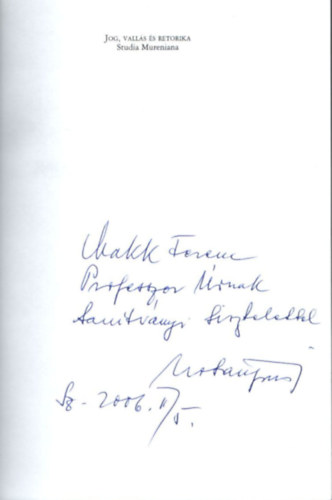 JOG, VALLÁS ÉS RETORIKA
Studia Mureniana
Makk Ferenc
Professzor Úrnak
tanítványi tisztelettel
Sz. 2006. II/5.